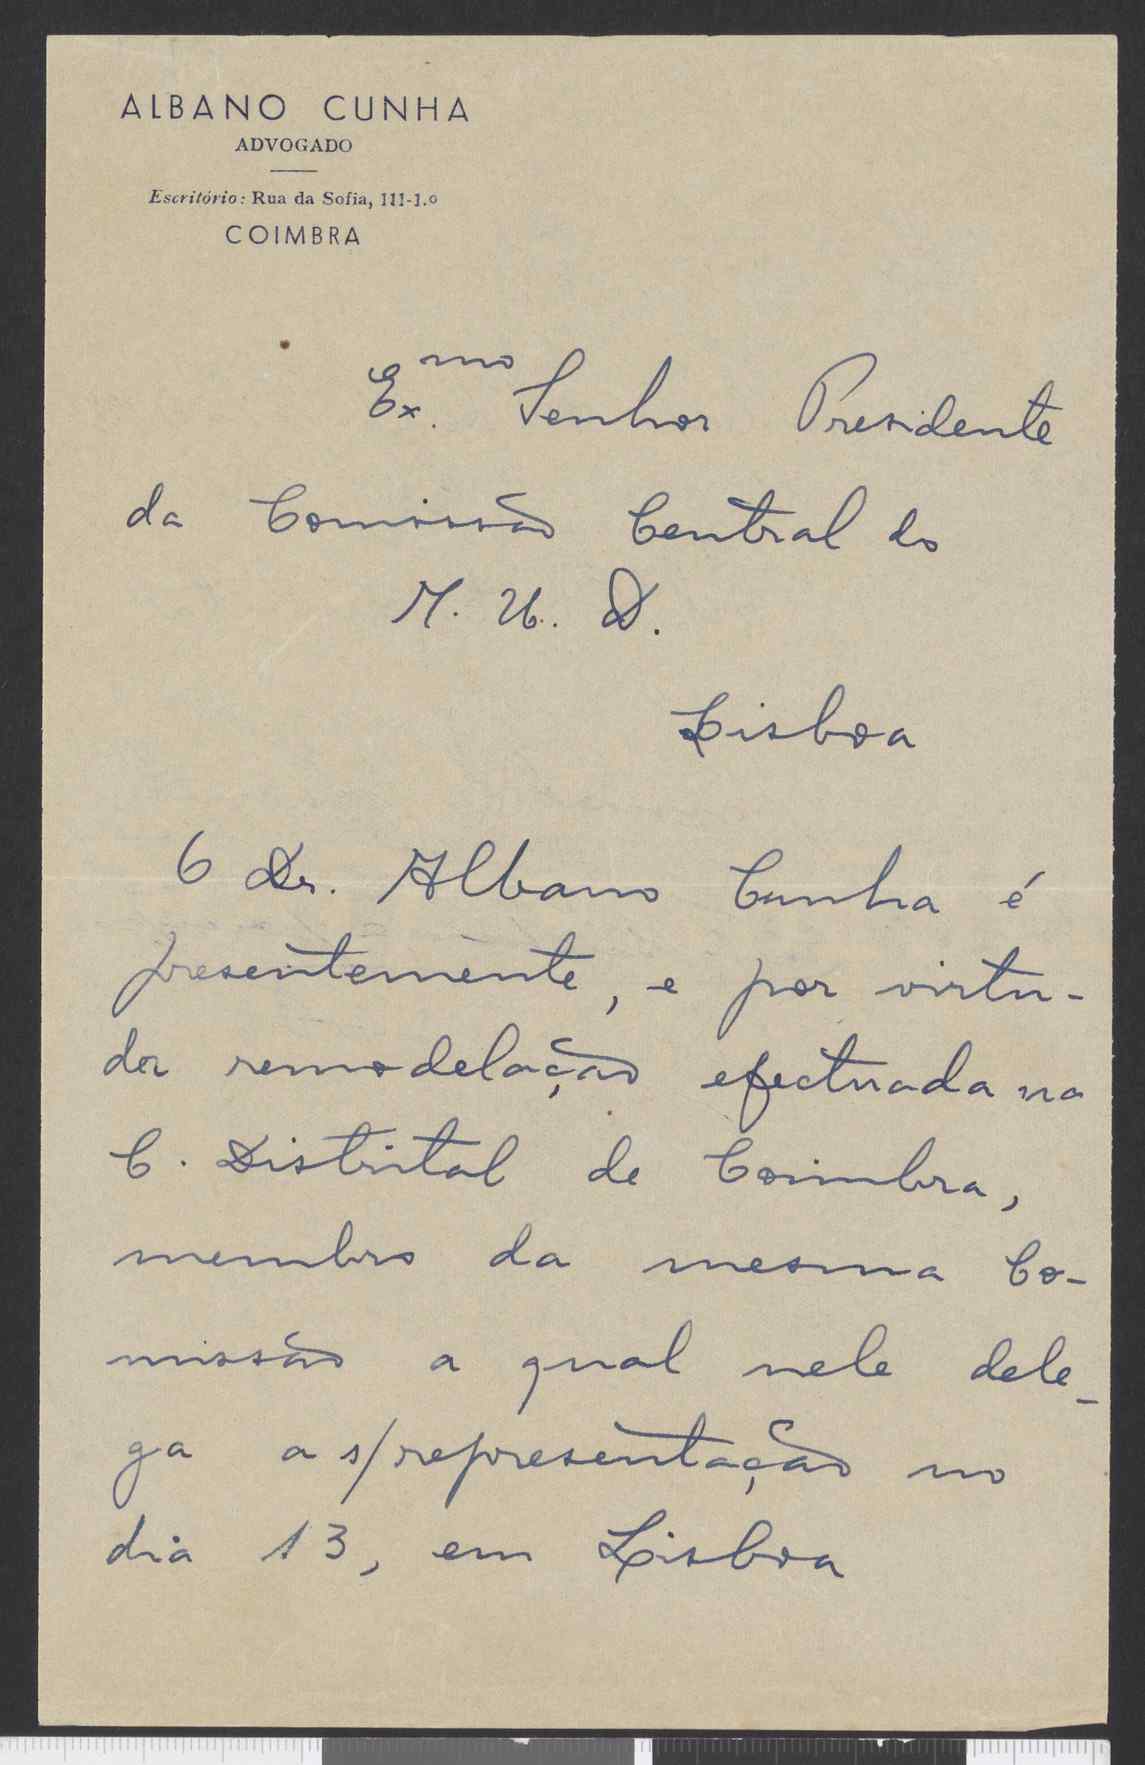 ALBANO CUNHA
ADVOGADO
Escritório: Rua da Sofia, 111-1.º
COIMBRA
Ex.mo Senhor Presidente
da Comissão Central do
M. U. D.
Lisboa
O Dr. Albano Cunha é
presentemente, e por virtu-
de remodelação efectuada na
C. Distrital de Coimbra,
membro da mesma Co-
missão a qual nele dele-
ga a s/representação no
dia 13, em Lisboa